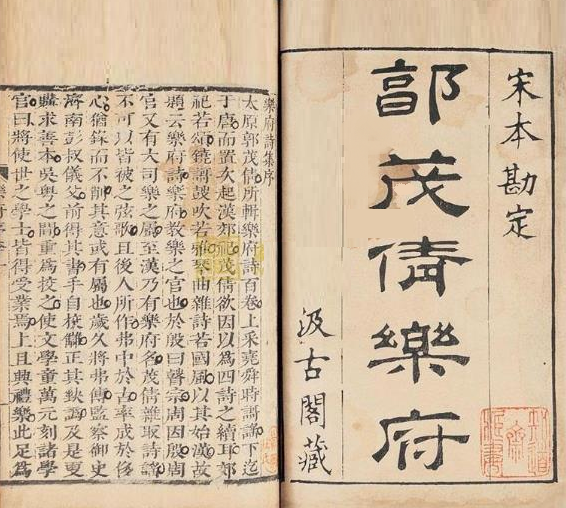 宋本勘定
郭茂倩樂府
汲古閣藏
樂府詩集序
太原郭茂倩所輯樂府詩百卷上采堯舜時謌謠下迄
于唐而置次起漢郊祀茂倩欲因以爲四詩之續耳郊
祀若頌鐃謌鼓吹若雅琴曲雜詩若國風以其始漢故
題云樂府詩樂府教樂之官也於殷曰瞽宗周因殷周
官又有大司樂之屬至漢乃有樂府名茂倩雜取詩謠
不可以皆被之弦歌且後人所作弗中於古率成於後
心錄而不削其意或有屬也歲久將弗傳監察御史
濟南彭叔儀父前得其書手自校讎正其缺譌及是更
購求善本吳粵之間重爲挍之使文學童萬元刻諸學
官曰將使世之學士皆得受業焉上且興禮樂此足爲